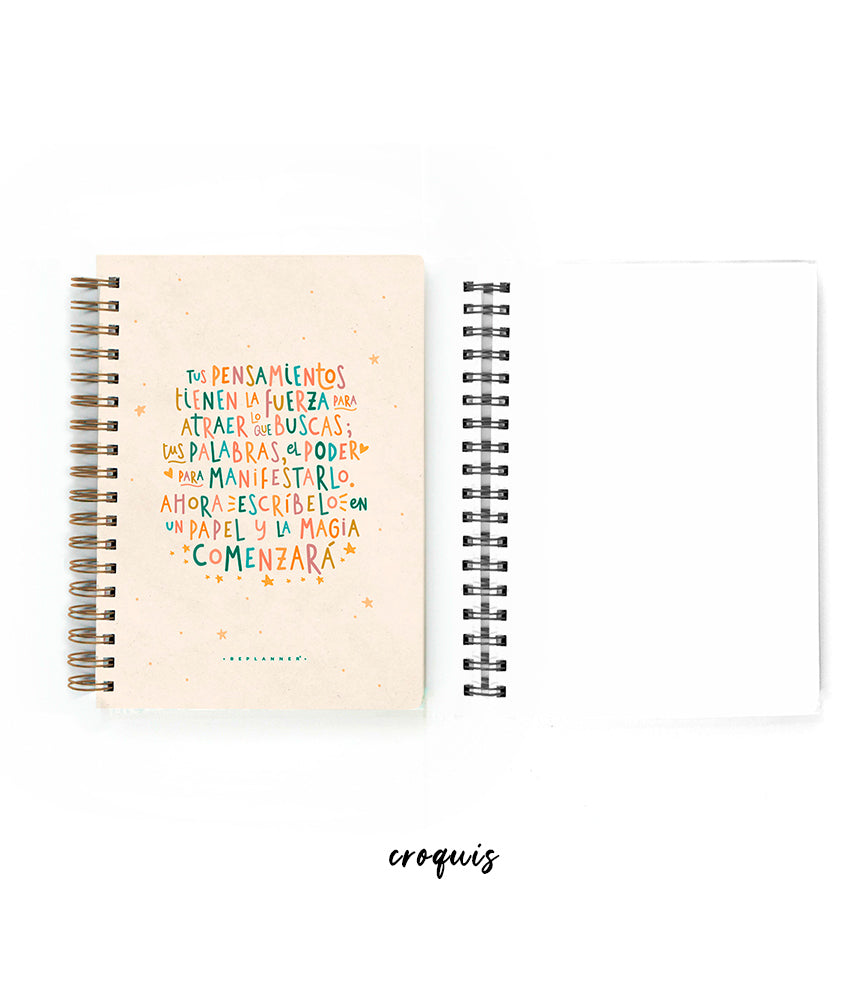 TUS PENSAMIENTOS
TIENEN LA FUERZA PARA
ATRAER LO QUE BUSCAS;
TUS PALABRAS, EL PODER
PARA MANIFESTARLO.
AHORA ESCRÍBELO EN
UN PAPEL Y LA MAGIA
COMENZARÁ
·BEPLANNER·
croquis